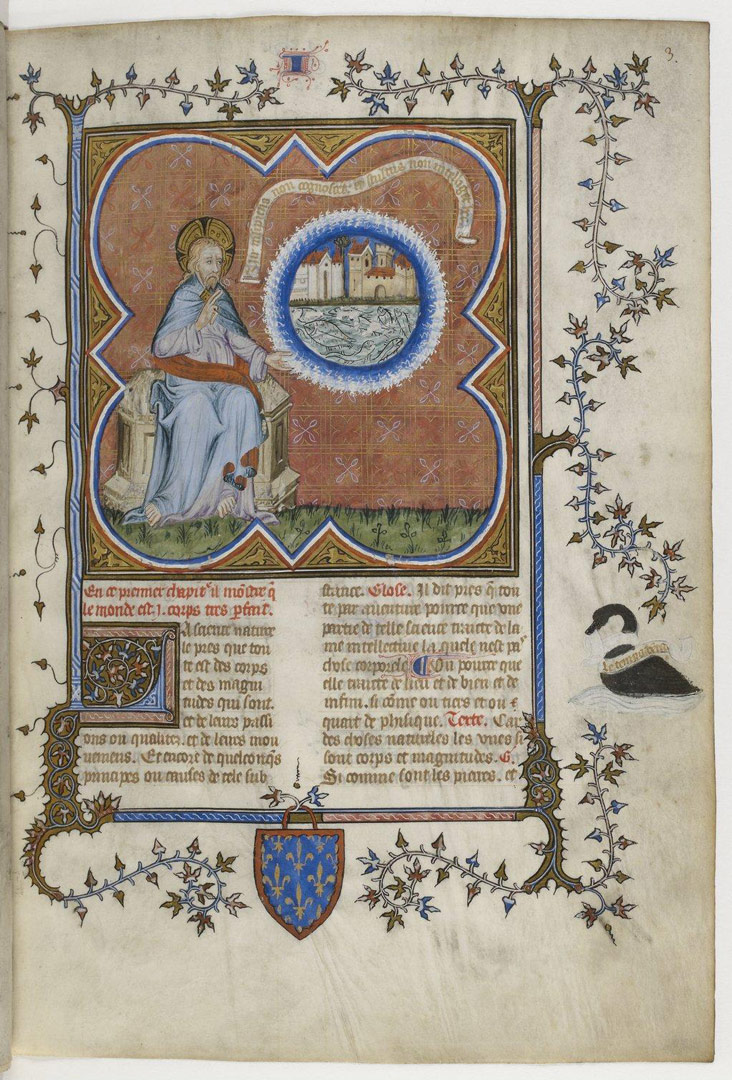 3.
insipiens non cognoscet et stultus non intelliget
En ce premier chapit̄ il mōstre q̄
le monde est .i. corps tres ꝑfait.
A science nature
le pres que tou
te est des corps
et des magni
tudes qui sont.
et de leurs passi
ons ou qualitez. et de leurs mou
uemens. Et encore de quelconq̄s
principes ou causes de tele sub
stance. Glose. Il dit pres q̄ tou
te par auenture pource que vne
partie de telle science traicte de la
me intellectiue la quele nest pa
chose corporele. ¶ Ou pource que
elle traicte de lieu et de bien et de
infini. si cōme ou tiers et ou
quart de phisique. Texte. Car
des choses natureles les vnes si
sont corps et magnitudes. G.
Si comme sont les pieres. et
Le temps venra